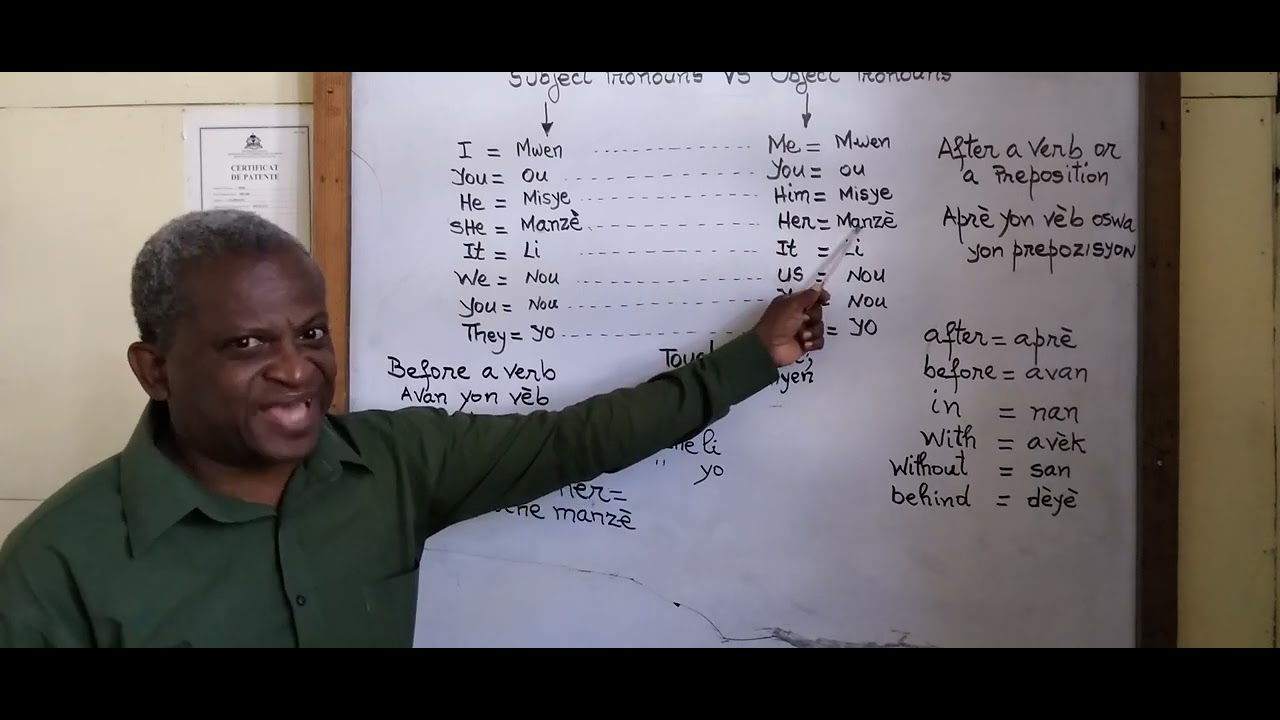 Subject Pronouns VS Object Pronouns
CERTIFICAT
DE PATENTE
I = Mwen
You = ou
He = Misye
SHe = Manzè
It = Li
We = Nou
You = Nou
They = yo
Before a verb
Avan yon vèb
Me = Mwen
You = ou
Him = Misye
Her = Manzè
It = Li
US = Nou
= Nou
= YO
li
" yo
her =
manzè
After a verb or
a Preposition
Aprè yon vèb oswa
yon prepozisyon
after = aprè
before = avan
in = nan
With = avèk
Without = san
behind = dèyè